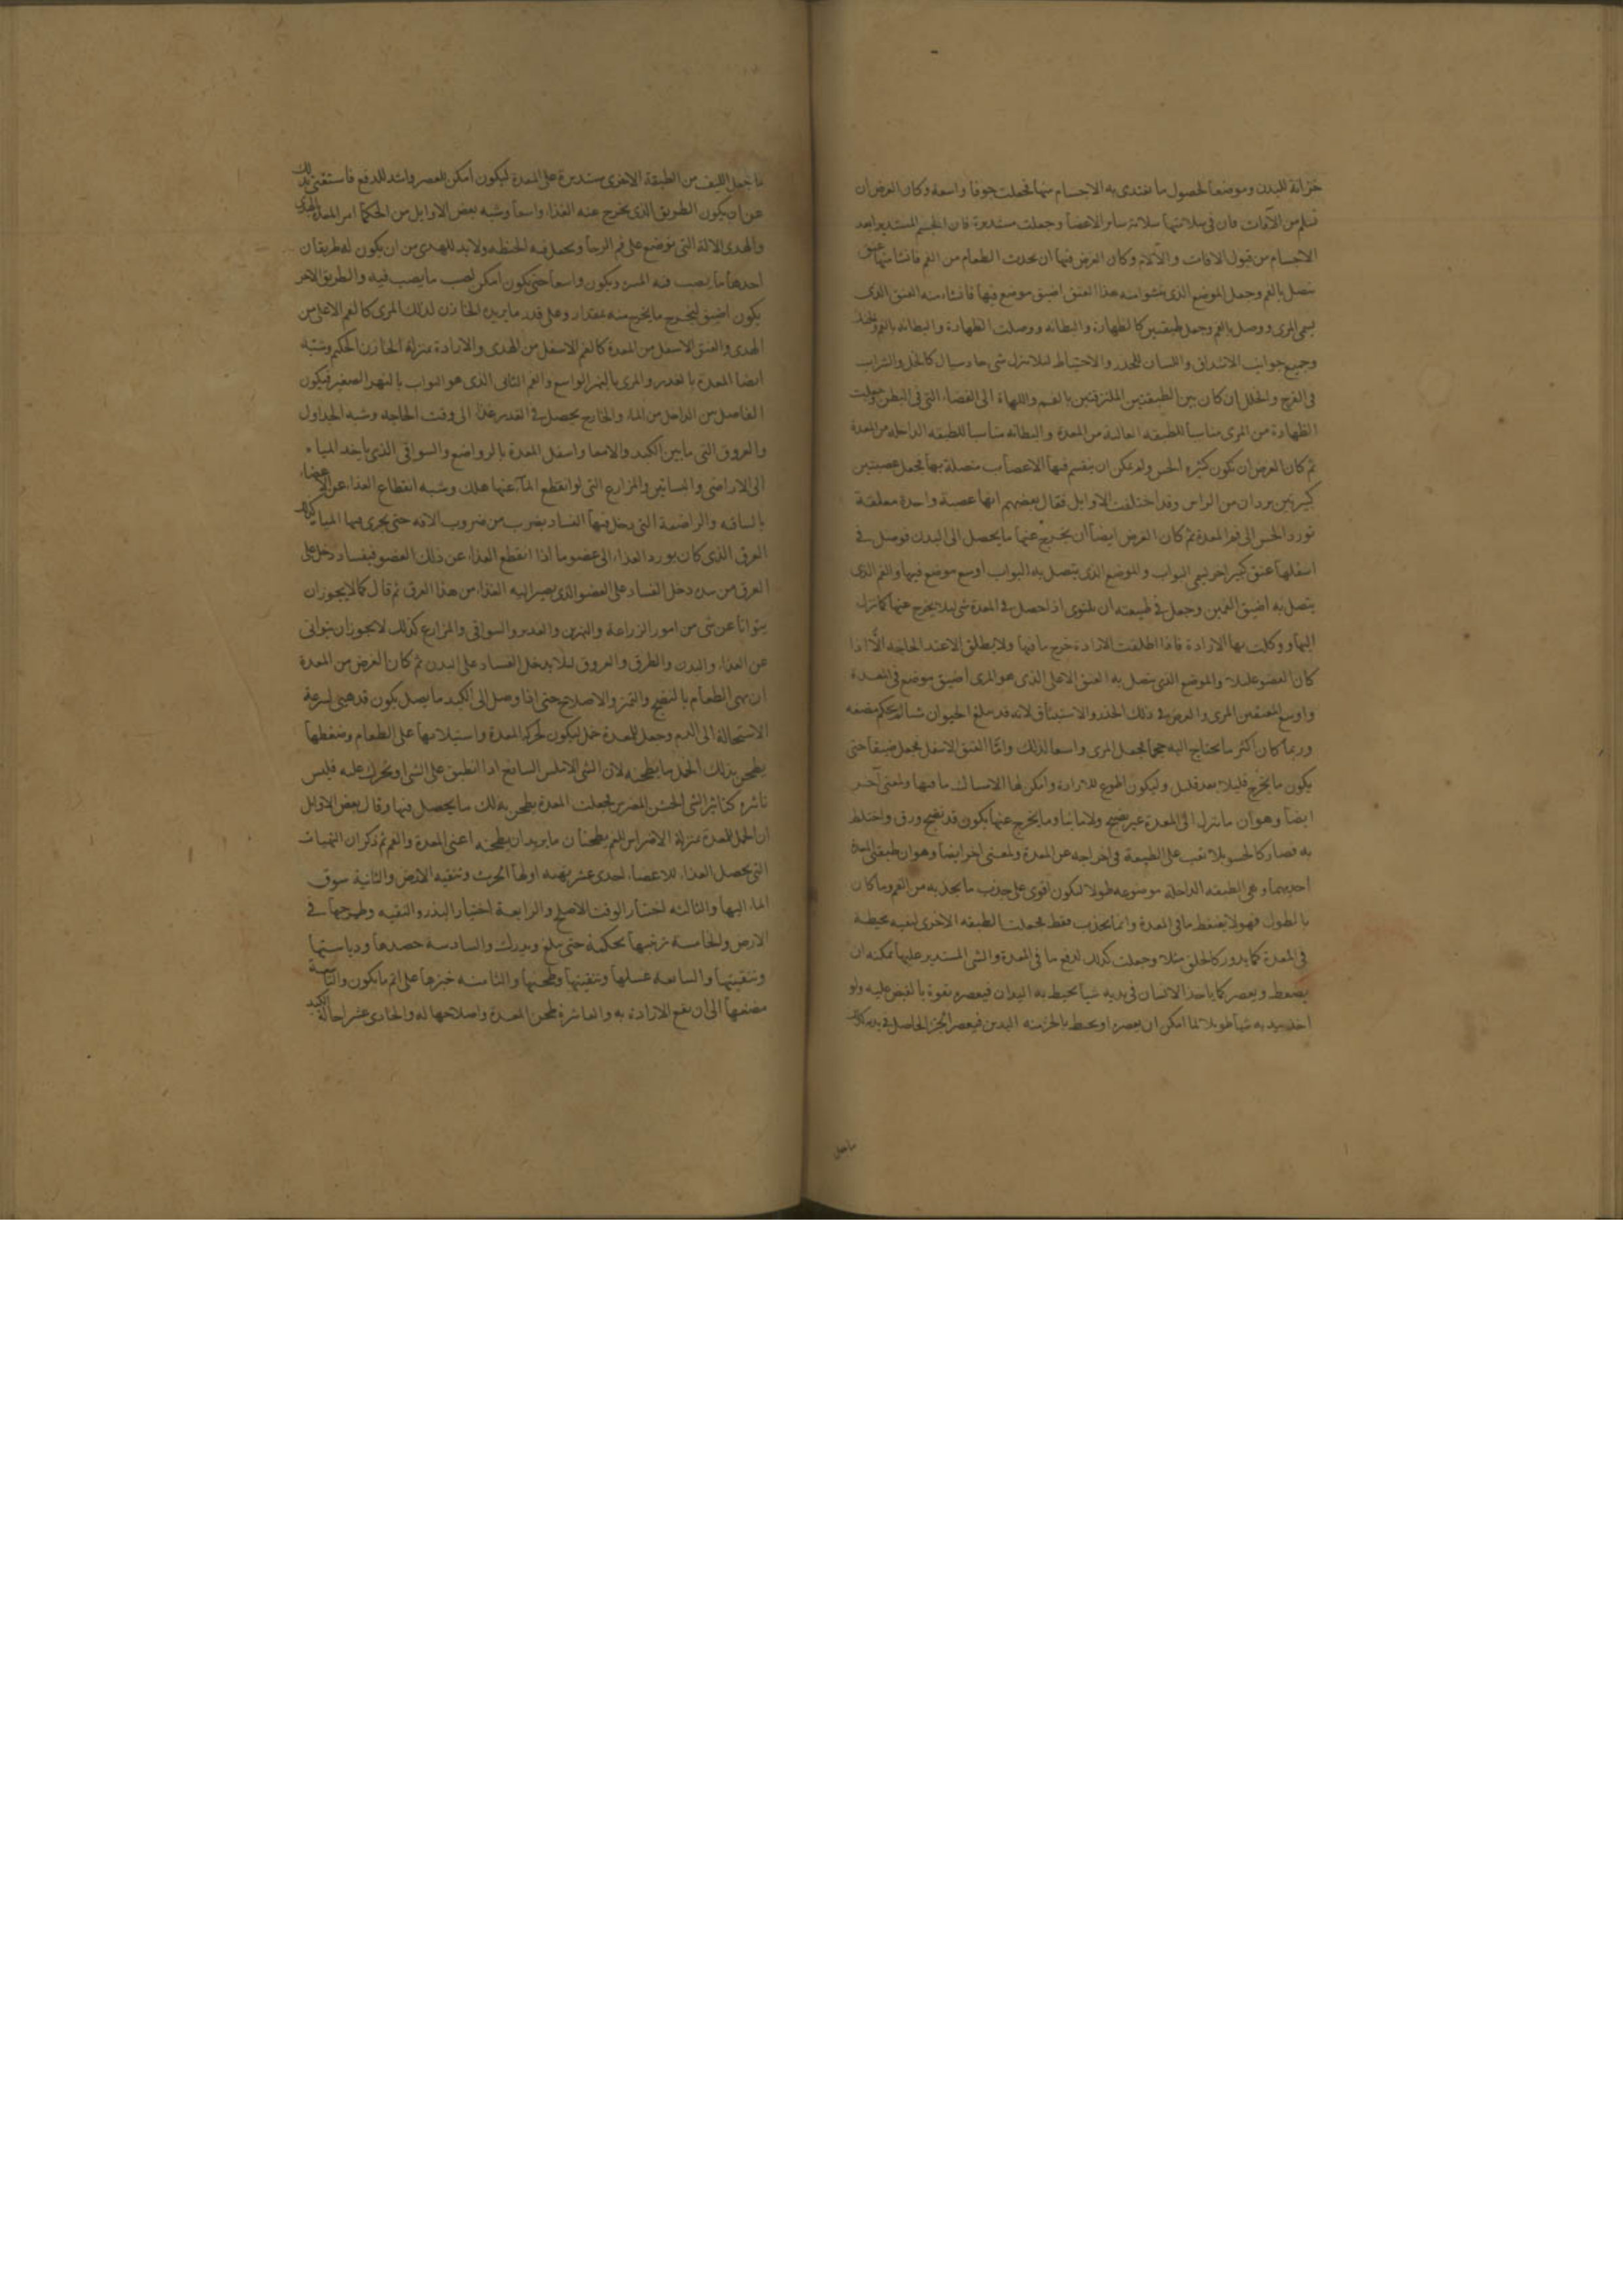 خزانة للبدن وموضعا لحصول ما تغتذى به الاجسام منها فجعلت جوفا واسعة وكان الغرض ان
تسلم من الآفات فان فى سلامتها سلامة ساير الاعضا وجعلت مستديرة فان الجسم المستدير ابعد
الاجسام من قبول الافات والآلام وكان الغرض فيها ان يحدث الطعام من الفم فانشا منها عنق
متصل بالفم وجعل الموضع الذى ينشوا منه هذا العنق اضيق موضع فيها فانشاء منه العنق الذى
يسمى المرى ووصل بالفم وجعل طبقتين كالظهارة والبطانه ووصلت الظهارة والبطانه بالفم
وجميع جوانب الاشداق واللسان للحذر والاحتياط ليلا ينزل شى حاد سيال كالخل والشراب
فى الفرج والخلل ان كان بين الطبقتين الملتزقتين بالفم واللهاة الى الفضاء التى فى البطن وجعلت
الظهارة من المرى مناسبا للطبقه العالية من المعدة والبطانه مناسبا للطبقه الداخله من المعدة
ثم كان الغرض ان تكون كثيره الحس ولم يمكن ان ينقسم فيها الاعصاب متصلة بها فجعل عصبتين
كبيرتين يردان من الراس وقد اختلفت الاوايل فقال بعضهم انها عصبة واحدة معلقة
تورد الحس الى فم المعدة ثم كان الغرض ايضا ان يخرج عنها ما يحصل الى البدن فوصل فى
اسفلها عنق كبير اخر يسمى البواب والموضع الذى يتصل به البواب اوسع موضع فيها والفم الذى
يتصل به اضيق الفمين وجعل فى طبيعته ان يلتوى اذا حصل فى المعدة شى ليلا يخرج عنها كما نزل
اليها ووكلت بها الارادة فاذا اطلقت الارادة خرج ما فيها ولا يطلق الا عند الحاجه الّا اذا
كان العضو عليلا والموضع الذى يتصل به العنق الاعلى الذى هو المرى اضيق موضع فى المعدة
واوسع العنقين المرى والغرض فى ذلك الحذر والاستيثاق لانه قد يبلع الحيوان شيا لم يحكم مضغه
وربما كان اكثر ما يحتاج اليه حجما فجعل المرى واسعا لذلك وامّا العنق الاسفل فجعل ضيقا حتى
يكون ما يخرج قليلا بعد قليل وليكون اطوع للارادة وامكن لها الامساك ما فيها ولمعنى آخر
ايضا وهو ان ما ينزل الى المعدة غير نضيج ولا نايا وما يخرج عنها يكون قد نضج ورق واختلط
به فصار كالحسو بلا تعب على الطبيعة فى اخراجه عن المعدة ولمعنى اخر ايضا وهو ان طبقتى المعدة
احديهما وهى الطبقه الداخلة موضوعه طولا لتكون اقوى على جذب ما يجذبه من الفم وما كان
بالطول فهو لا يضغط ما فى المعدة وانما يجذب فقط فجعلت الطبقه الاخرى ليفيه محيطة
فى المعدة كما يدور كالحلق مثلا وجعلت كذلك لدفع ما فى المعدة والشى المستدير عليها يمكنه ان
يضغط ويعصر كما ياخذ الانسان فى يديه شيا يحيط به اليدان فيعصره بقوة بالقبض عليه ولو
اخذ بيديه شيا طويلا لما امكن ان يعصره او يحيط بالجزء منه اليدين فيعصر الجزء الحاصل فى يديه
ما جعل
ما جعل الليف من الطبقة الاخرى مستديرة على المعدة ليكون امكن للعصر واشد للدفع فاستغنى بذلك
عن ان يكون الطريق الذى يخرج عنه الغذاء واسعا وشبه بعض الاوايل من الحكما امر المعدة بالهدى
والهدى الالة التى توضع على فم الرحا ويجعل فيه الحنطه ولا بد للهدى من ان يكون له طريقان
احدهما ما يصب فيه ويكون واسعا حتى يكون امكن لصب ما يصب فيه والطريق الاخر
يكون اضيق ليخرج ما يخرج منه بمقدار وعلى قدر ما يريده الخازن لذلك المرى كالفم الاعلى من
الهدى والعنق الاسفل من المعدة كالفم الاسفل من الهدى والارادة بمنزلة الخازن الحكيم وشبه
ايضا المعدة بالغدير والمرى بالنهر الواسع والفم الثانى الذى هو البواب بالنهر الصغير فيكون
الفاصل من الداخل من الماء والخارج يحصل فى الغدير الى وقت الحاجه وشبه الجداول
والعروق التى ما بين الكبد والامعا واسفل المعدة بالرواضع والسواقى الذى ياخذ المياه
الى الاراضى والبساتين والمزارع التى لو انقطع المآء عنها هلك وشبه انقطاع الغذاء عن الاعضاء
بالساقيه والراضعة التى يدخل فيها الفساد بضرب من ضروب الآفه حتى يجرى فيها المياه كذلك
العرق الذى كان يورد الغذاء الى عضو ما اذا انقطع الغذاء عن ذلك العضو فبفساد دخل على
العرق من سده دخل الفساد على العضو الذى يصير اليه الغذاء من هذا العرق ثم قال كما لا يجوز ان
يتوانا عن شى من امور الزراعة والنهرين والغدير والسواقى والمزارع كذلك لا يجوز ان يتوانى
عن الغذاء والبدن والطرق والعروق ليلا يدخل الفساد على البدن ثم كان الغرض من المعدة
ان يهى الطعام بالنضج والتمييز والاصلاح حتى اذا وصل الى الكبد ما يصل يكون قد هيى لسرعة
الاستحالة الى الدم وجعل للمعدة خمل ليكون لحركة المعدة واستيلايها على الطعام وضغطها
يطحن بذلك الخمل ما يطحنه لان الشى الاملس السايغ اذا انطبق على الشى او يحرك عليه فليس
تاثيره كتاثير الشى الخشن المضرس فجعلت المعدة يطحن بذلك ما يحصل فيها وقال بعض الاوايل
ان الخمل للمعدة بمنزلة الاضراس للفم يطحنان ما يريدان يطحنه اعنى المعدة والفم ثم ذكر ان التهيات
التى يحصل الغذاء للاعضاء احدى عشر تهيه اولها الحرث وتنقيه الارض والثانية سوق
الماء اليها والثالثه اختيار الوقت الاصلح والرابعة اختيار البذر والتنقيه وطرحها فى
الارض والخامسة ترتيبها بحكمة حتى يبلغ ويدرك والسادسة حصدها ودياستها
وتنقيتها والسابعه غسلها وتنقيتها وطحنها والثامنه خبزها على اتم ما يكون والتاسعة
مضغها الى ان يقع الارادة به والعاشرة طحن المعدة واصلاحها له والحادى عشر احالة الكبد